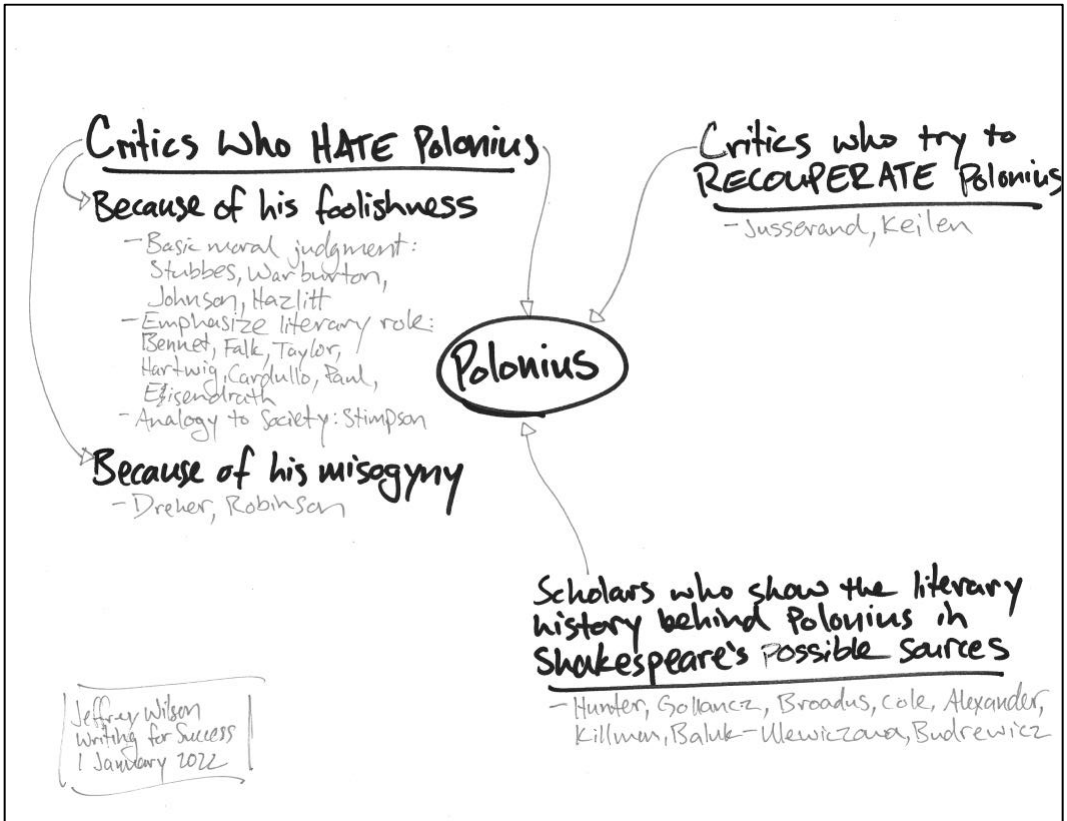 Critics who HATE Polonius
Because of his foolishness
- Basic moral judgment:
Stubbes, Warburton,
Johnson, Hazlitt
- Emphasize literary role:
Bennet, Falk, Taylor,
Hartwig, Cardullo, Paul,
Eisendrath
- Analogy to Society: Stimpson
Because of his misogyny
- Dreher, Robinson
Critics who try to
RECOUPERATE Polonius
- Jusserand, Keilen
Polonius
Scholars who show the literary
history behind Polonius in
Shakespeare's possible sources
- Hunter, Gollancz, Broadus, Cole, Alexander,
Killman, Baluk-Ulewiczowa, Budrewicz
Jeffrey Wilson
Writing for Success
1 January 2022